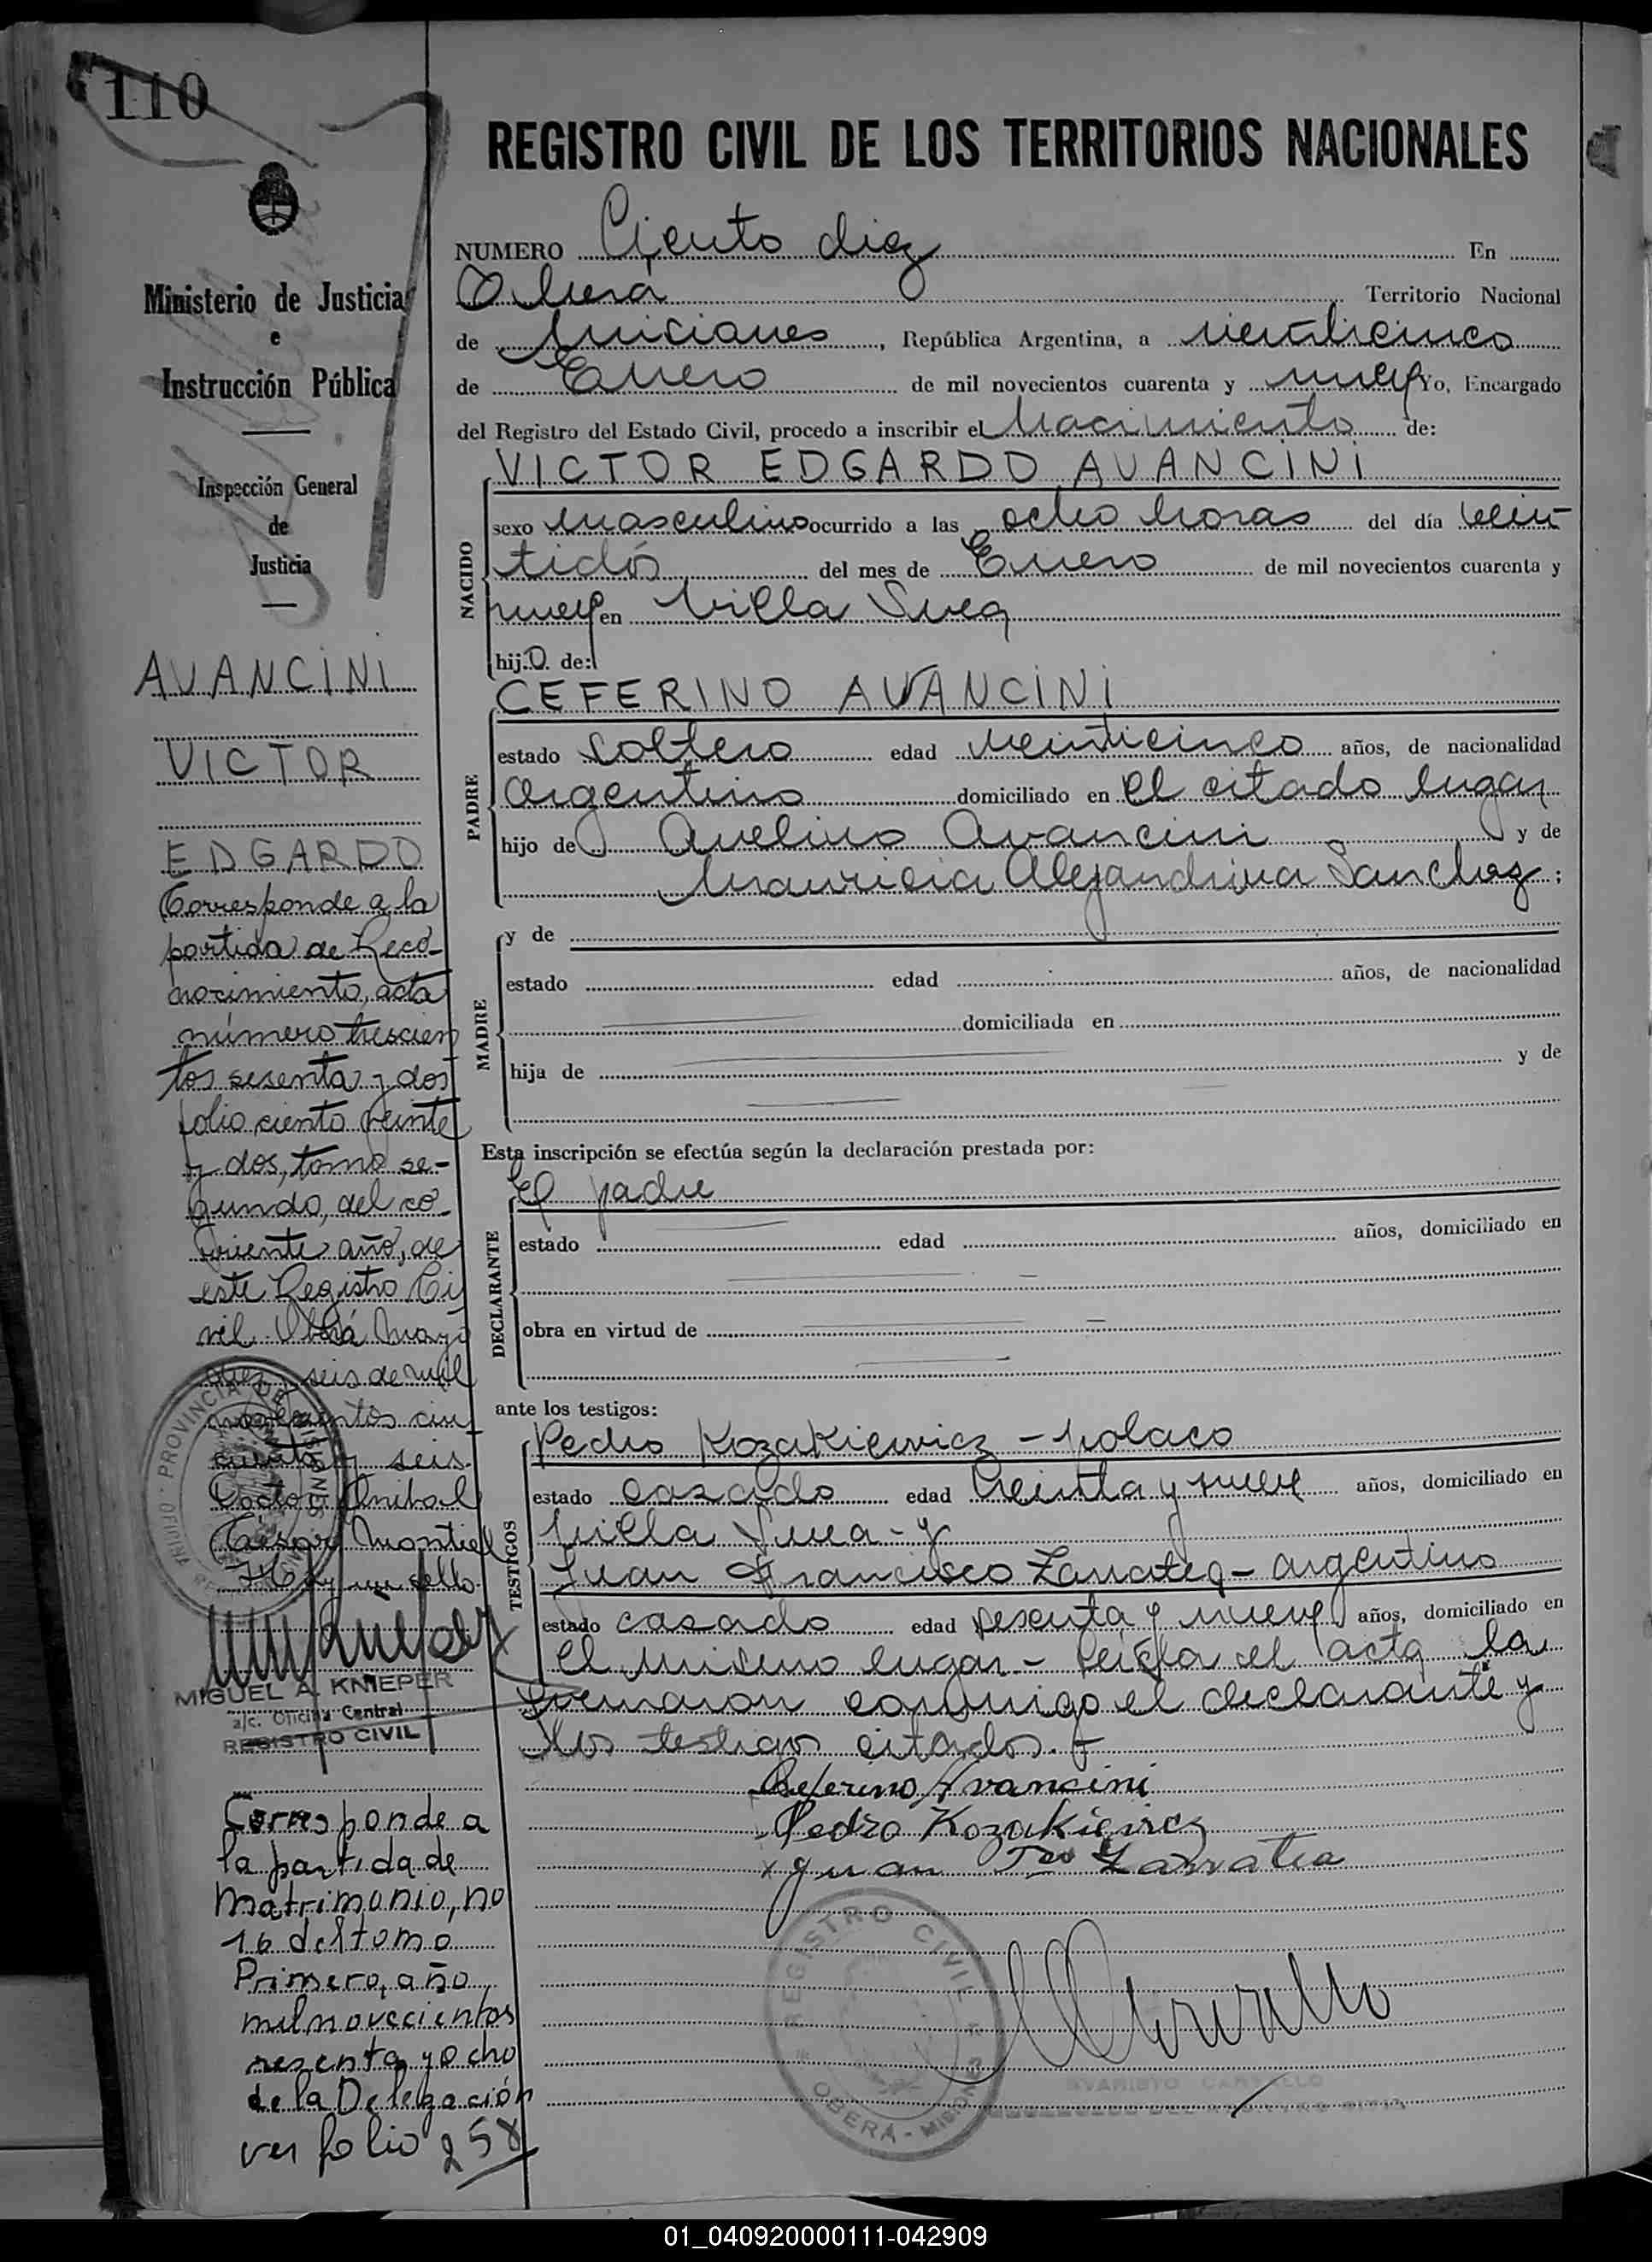 110
Ministerio de Justicia
e
Instrucción Pública
Inspección General
de
Justicia
AVANCINI
VICTOR
EDGARDO
Corresponde a la
partida de Reco-
nocimiento, acta
número trescien
tos sesenta y dos
folio ciento veinte
y dos, tomo se-
gundo, del co-
rriente año, de
este Registro Ci
vil. Oberá Mayo
diez y seis de mil
novecientos cin
cuenta y seis.
Doctor Anibal
César Montiel
Hay un sello.
PROVINCIA DE MISIONES
MIGUEL A. KNIEPER
a/c. Oficina Central
REGISTRO CIVIL
Corresponde a
la partida de
Matrimonio, no
16 del tomo
Primero, año
mil novecientos
sesenta y ocho
de la Delegación
ver folio 258
REGISTRO CIVIL DE LOS TERRITORIOS NACIONALES
NUMERO Ciento diez En
Oberá Territorio Nacional
de Misiones, República Argentina, a veinticinco
de Enero de mil novecientos cuarenta y nueve Yo, Encargado
del Registro del Estado Civil, procedo a inscribir el Nacimiento de:
VICTOR EDGARDO AVANCINI
NACIDO
sexo masculino ocurrido a las ocho horas del día vein
tidós del mes de Enero de mil novecientos cuarenta y
nueve en Villa Svea
hijo de:
CEFERINO AVANCINI
PADRE
estado soltero edad veinticinco años, de nacionalidad
argentino domiciliado en el citado lugar
hijo de Avelino Avancini y de
Mauricia Alejandrina Sanchez;
MADRE
y de
estado edad años, de nacionalidad
domiciliada en
hija de y de
Esta inscripción se efectúa según la declaración prestada por:
DECLARANTE
El padre
estado edad años, domiciliado en
obra en virtud de
ante los testigos:
TESTIGOS
Pedro Kozakiewicz - polaco
estado casado edad treinta y nueve años, domiciliado en
Villa Svea - y
Juan Francisco Zarratea - argentino
estado casado edad sesenta y nueve años, domiciliado en
el mismo lugar - Leída el acta la
firmaron conmigo el declarante y
los testigos citados.
Ceferino Avancini
Pedro Kozakiewicz
x Juan Fco Zarratea
REGISTRO CIVIL
OBERÁ - MISIONES
01_040920000111-042909